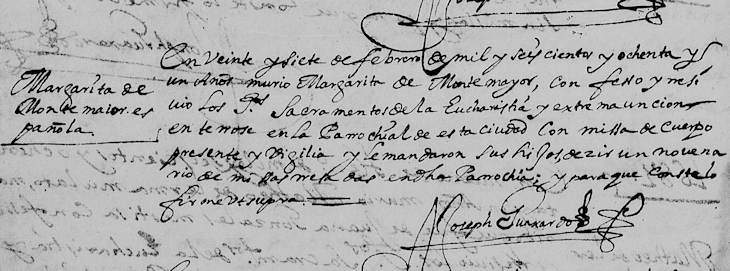 Margarita de
Montemaior. es
pañola.
En Veinte y siete de febrero de mil y seis cientos y ochenta y
un Años murio Margarita de Montemayor, Confeso y resi
vio Los Stos Sacramentos de la Eucharistia y extremauncion
enterrose en la Parrochial de esta Ciudad Con missa de Cuerpo
presente y Vigilia y le mandaron sus hijos dezir un novena
rio de missas resadas en dha Parrochia; y para que conste lo
firme Ut supra.
Joseph Guaxardo